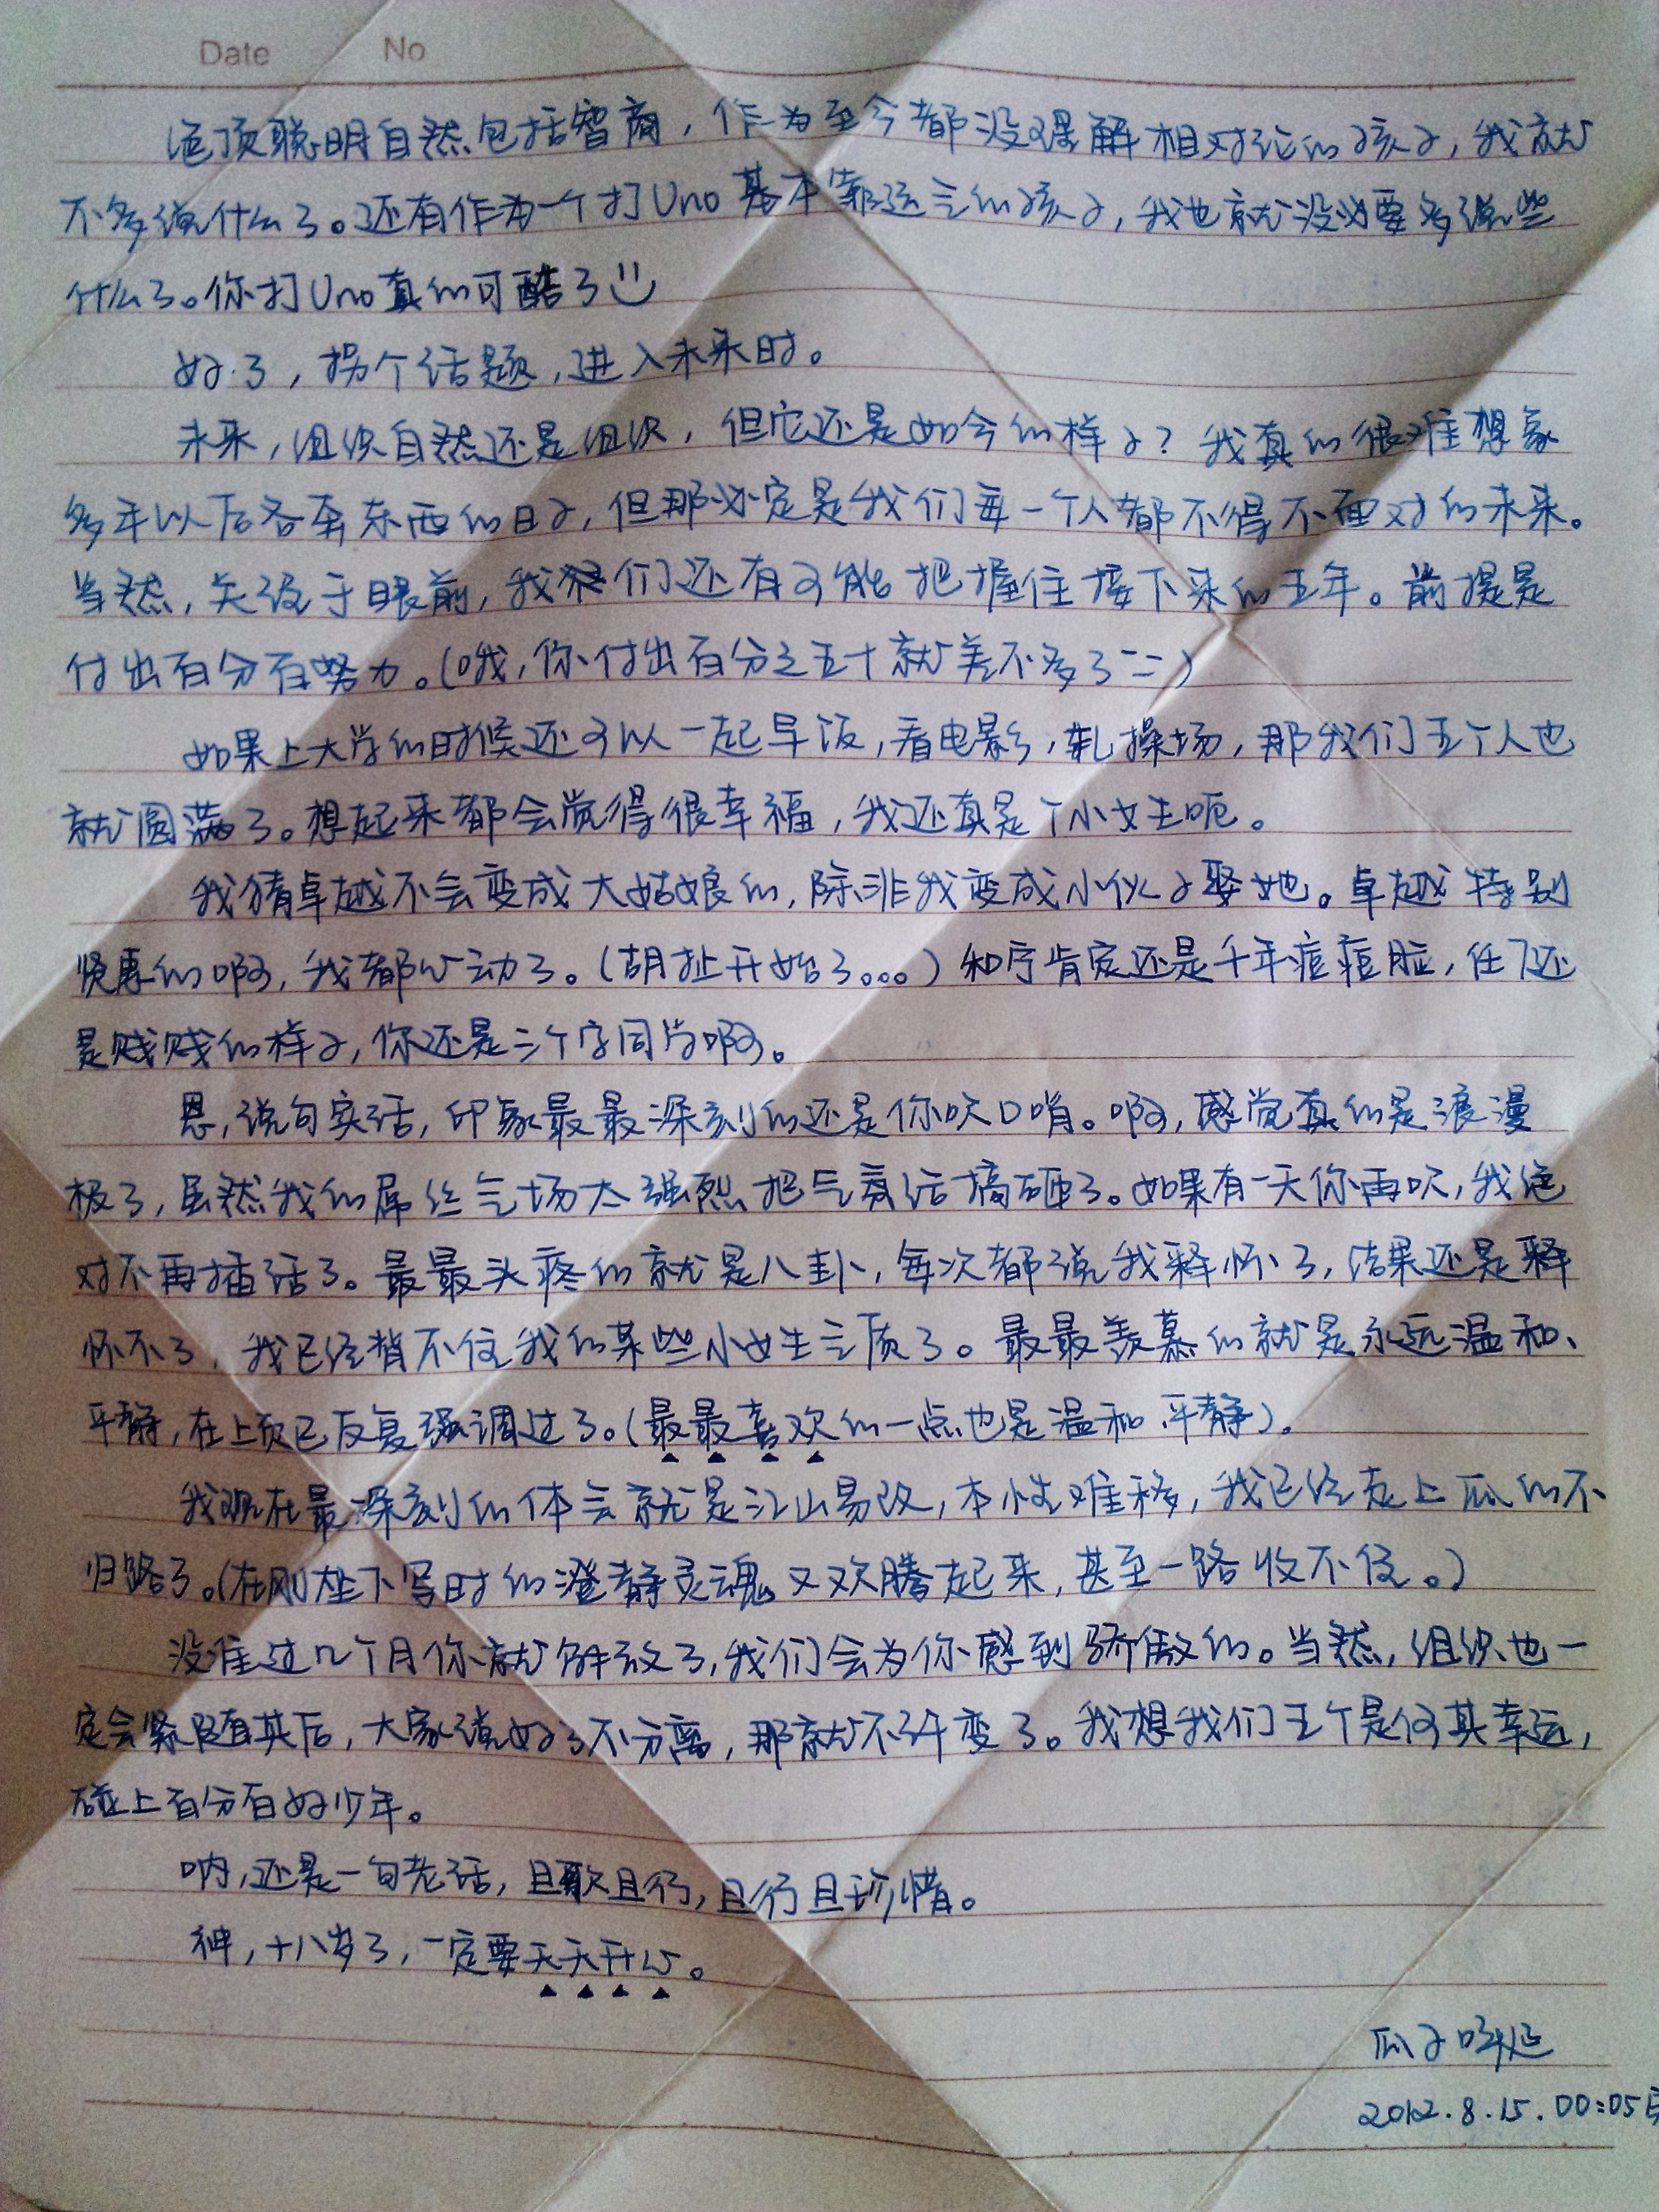 Date No
绝顶聪明自然包括智商，作为至今都没理解相对论的孩子，我就
不多说什么了。还有作为一个打Uno基本靠运气的孩子，我也就没必要多说些
什么了。你打Uno真的可酷了
好了，拐个话题，进入未来时。
未来，组织自然还是组织，但它还是如今的样子？我真的很难想象
多年以后各奔东西的日子，但那必定是我们每一个人都不得不面对的未来。
当然，关注于眼前，我们还有可能把握住接下来的五年。前提是
付出百分百努力。（哦，你付出百分之五十就差不多了＝＝）
如果上大学的时候还可以一起早饭，看电影，轧操场，那我们五个人也
就圆满了。想起来都会觉得很幸福，我还真是个小女生呃。
我猜卓越不会变成大姑娘的，除非我变成小伙子娶她。卓越特别
贤惠的啊，我都心动了。（胡扯开始了。。。）和宁肯定还是千年痘痘脸，任飞还
是贱贱的样子，你还是三个字同学啊。
恩，说句实话，印象最最深刻的还是你吹口哨。啊，感觉真的是浪漫
极了，虽然我的屌丝气场太强烈把气氛给搞砸了。如果有一天你再吹，我绝
对不再插话了。最最头疼的就是八卦，每次都说我释怀了，结果还是释
怀不了，我已经掩不住我的某些小女生气质了。最最羡慕的就是永远温和、
平静，在上页已反复强调过了。（最最喜欢的一点也是温和平静）。
我现在最深刻的体会就是江山易改，本性难移，我已经走上瓜的不
归路了。（在刚坐下写时的澄静灵魂又欢腾起来，甚至一路收不住。）
没准过几个月你就解放了，我们会为你感到骄傲的。当然，组织也一
定会紧随其后，大家说好了不分离，那就不许变了。我想我们五个是何其幸运，
碰上百分百好少年。
呐，还是一句老话，且歌且行，且行且珍惜。
神，十八岁了，一定要天天开心。
瓜子
2012.8.15.00:05